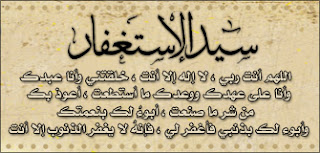 سيد الإستغفار
اللهم أنت ربي ، لا إله إلا أنت ، خلقتني وأنا عبدك
وأنا على عهدك ووعدك ما أستطعت ، أعوذ بك
من شر ما صنعت ، أبوء لك بنعمتك
وأبوء لك بذنبي فأغفر لي ، فانه لا يغفر الذنوب إلا أنت